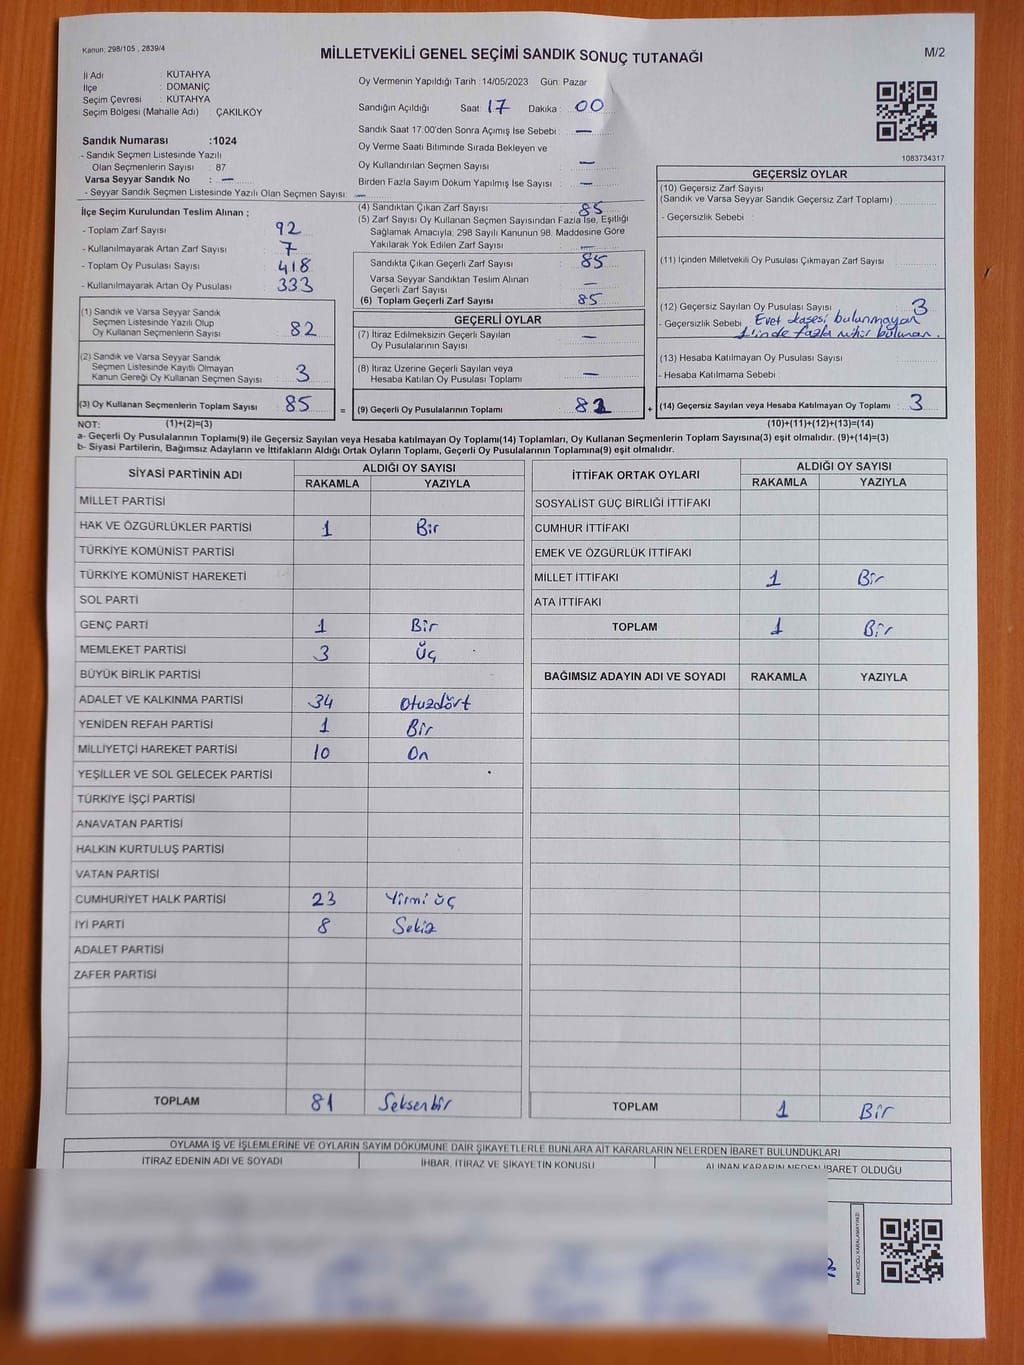 Kanun: 298/105 , 2839/4
MİLLETVEKİLİ GENEL SEÇİMİ SANDIK SONUÇ TUTANAĞI
M/2
İl Adı : KÜTAHYA
İlçe : DOMANİÇ
Seçim Çevresi : KÜTAHYA
Seçim Bölgesi (Mahalle Adı) ÇAKILKÖY
Sandık Numarası :1024
- Sandık Seçmen Listesinde Yazılı
Olan Seçmenlerin Sayısı : 87
Varsa Seyyar Sandık No : —
- Seyyar Sandık Seçmen Listesinde Yazılı Olan Seçmen Sayısı: —
Oy Vermenin Yapıldığı Tarih : 14/05/2023 Gün: Pazar
Sandığın Açıldığı Saat: 17 Dakika : 00
Sandık Saat 17.00'den Sonra Açımış İse Sebebi : —
Oy Verme Saati Bitiminde Sırada Bekleyen ve
Oy Kullandırılan Seçmen Sayısı —
Birden Fazla Sayım Döküm Yapılmış İse Sayısı : —
1083734317
İlçe Seçim Kurulundan Teslim Alınan ;
- Toplam Zarf Sayısı 92
- Kullanılmayarak Artan Zarf Sayısı 7
- Toplam Oy Pusulası Sayısı 418
- Kullanılmayarak Artan Oy Pusulası 333
(1) Sandık ve Varsa Seyyar Sandık
Seçmen Listesinde Yazılı Olup
Oy Kullanan Seçmenlerin Sayısı 82
(2) Sandık ve Varsa Seyyar Sandık
Seçmen Listesinde Kayıtlı Olmayan
Kanun Gereği Oy Kullanan Seçmen Sayısı 3
(3) Oy Kullanan Seçmenlerin Toplam Sayısı 85
(4) Sandıktan Çıkan Zarf Sayısı : 85
(5) Zarf Sayısı Oy Kullanan Seçmen Sayısından Fazla İse, Eşitliği
Sağlamak Amacıyla; 298 Sayılı Kanunun 98. Maddesine Göre
Yakılarak Yok Edilen Zarf Sayısı —
Sandıkta Çıkan Geçerli Zarf Sayısı 85
Varsa Seyyar Sandıktan Teslim Alınan
Geçerli Zarf Sayısı —
(6) Toplam Geçerli Zarf Sayısı 85
GEÇERLİ OYLAR
(7) İtiraz Edilmeksizin Geçerli Sayılan
Oy Pusulalarının Sayısı —
(8) İtiraz Üzerine Geçerli Sayılan veya
Hesaba Katılan Oy Pusulası Toplamı —
= (9) Geçerli Oy Pusulalarının Toplamı 82
GEÇERSİZ OYLAR
(10) Geçersiz Zarf Sayısı
(Sandık ve Varsa Seyyar Sandık Geçersiz Zarf Toplamı)
- Geçersizlik Sebebi :
(11) İçinden Milletvekili Oy Pusulası Çıkmayan Zarf Sayısı
(12) Geçersiz Sayılan Oy Pusulası Sayısı 3
- Geçersizlik Sebebi : Evet kaşesi bulunmayan
1'inde fazla mühür bulunan.
(13) Hesaba Katılmayan Oy Pusulası Sayısı
- Hesaba Katılmama Sebebi :
+ (14) Geçersiz Sayılan veya Hesaba Katılmayan Oy Toplamı 3
NOT: (1)+(2)=(3) (10)+(11)+(12)+(13)=(14)
a- Geçerli Oy Pusulalarının Toplamı(9) ile Geçersiz Sayılan veya Hesaba katılmayan Oy Toplamı(14) Toplamları, Oy Kullanan Seçmenlerin Toplam Sayısına(3) eşit olmalıdır. (9)+(14)=(3)
b- Siyasi Partilerin, Bağımsız Adayların ve İttifakların Aldığı Ortak Oyların Toplamı, Geçerli Oy Pusulalarının Toplamına(9) eşit olmalıdır.
SİYASİ PARTİNİN ADI ALDIĞI OY SAYISI
RAKAMLA YAZIYLA
MİLLET PARTİSİ
HAK VE ÖZGÜRLÜKLER PARTİSİ 1 Bir
TÜRKİYE KOMÜNİST PARTİSİ
TÜRKİYE KOMÜNİST HAREKETİ
SOL PARTİ
GENÇ PARTİ 1 Bir
MEMLEKET PARTİSİ 3 Üç
BÜYÜK BİRLİK PARTİSİ
ADALET VE KALKINMA PARTİSİ 34 Otuzdört
YENİDEN REFAH PARTİSİ 1 Bir
MİLLİYETÇİ HAREKET PARTİSİ 10 On
YEŞİLLER VE SOL GELECEK PARTİSİ
TÜRKİYE İŞÇİ PARTİSİ
ANAVATAN PARTİSİ
HALKIN KURTULUŞ PARTİSİ
VATAN PARTİSİ
CUMHURİYET HALK PARTİSİ 23 Yirmi üç
İYİ PARTİ 8 Sekiz
ADALET PARTİSİ
ZAFER PARTİSİ
TOPLAM 81 Seksenbir
İTTİFAK ORTAK OYLARI ALDIĞI OY SAYISI
RAKAMLA YAZIYLA
SOSYALİST GÜÇ BİRLİĞİ İTTİFAKI
CUMHUR İTTİFAKI
EMEK VE ÖZGÜRLÜK İTTİFAKI
MİLLET İTTİFAKI 1 Bir
ATA İTTİFAKI
TOPLAM 1 Bir
BAĞIMSIZ ADAYIN ADI VE SOYADI RAKAMLA YAZIYLA
TOPLAM 1 Bir
OYLAMA İŞ VE İŞLEMLERİNE VE OYLARIN SAYIM DÖKÜMÜNE DAİR ŞİKAYETLERLE BUNLARA AİT KARARLARIN NELERDEN İBARET BULUNDUKLARI
İTİRAZ EDENİN ADI VE SOYADI İHBAR, İTİRAZ VE ŞİKAYETİN KONUSU ALINAN KARARIN NEDEN İBARET OLDUĞU
KARE KODU KARALAMAYINIZ!